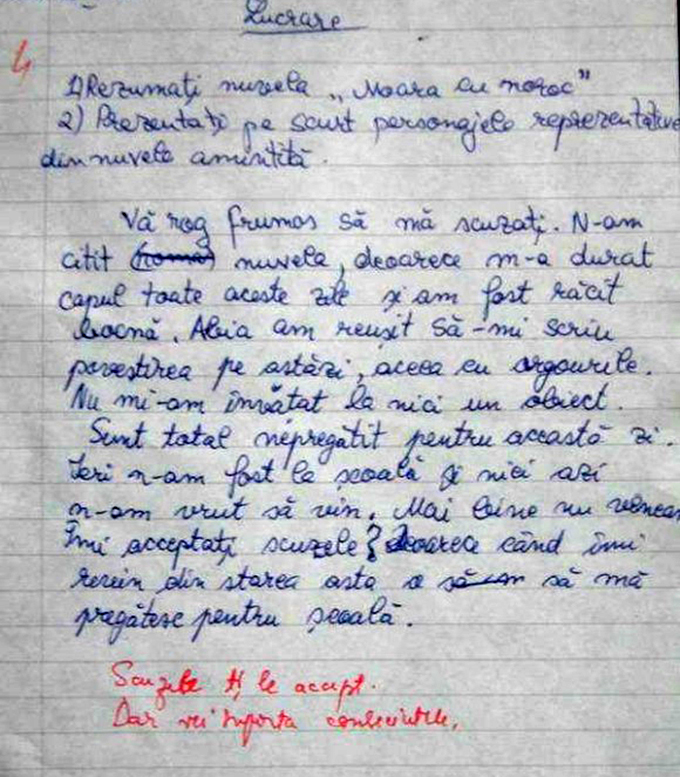 Lucrare
4
1) Rezumați nuvela „Moara cu noroc"
2) Prezentați pe scurt personajele reprezentative
din nuvela amintită.
Vă rog frumos să mă scuzați. N-am
citit (roma) nuvela, deoarece m-a durat
capul toate aceste zile și am fost răcit
bocnă. Abia am reușit să-mi scriu
povestirea pe astăzi, aceea cu argourile.
Nu mi-am învătat la nici un obiect.
Sunt total nepregătit pentru această zi.
Ieri n-am fost la școală și nici azi
n-am vrut să vin. Mai bine nu veneam
Îmi acceptați scuzele? Deoarece când îmi
revin din starea asta o să-m să mă
pregătesc pentru școală.
Scuzele ți le accept.
Dar vei suporta consecințele.